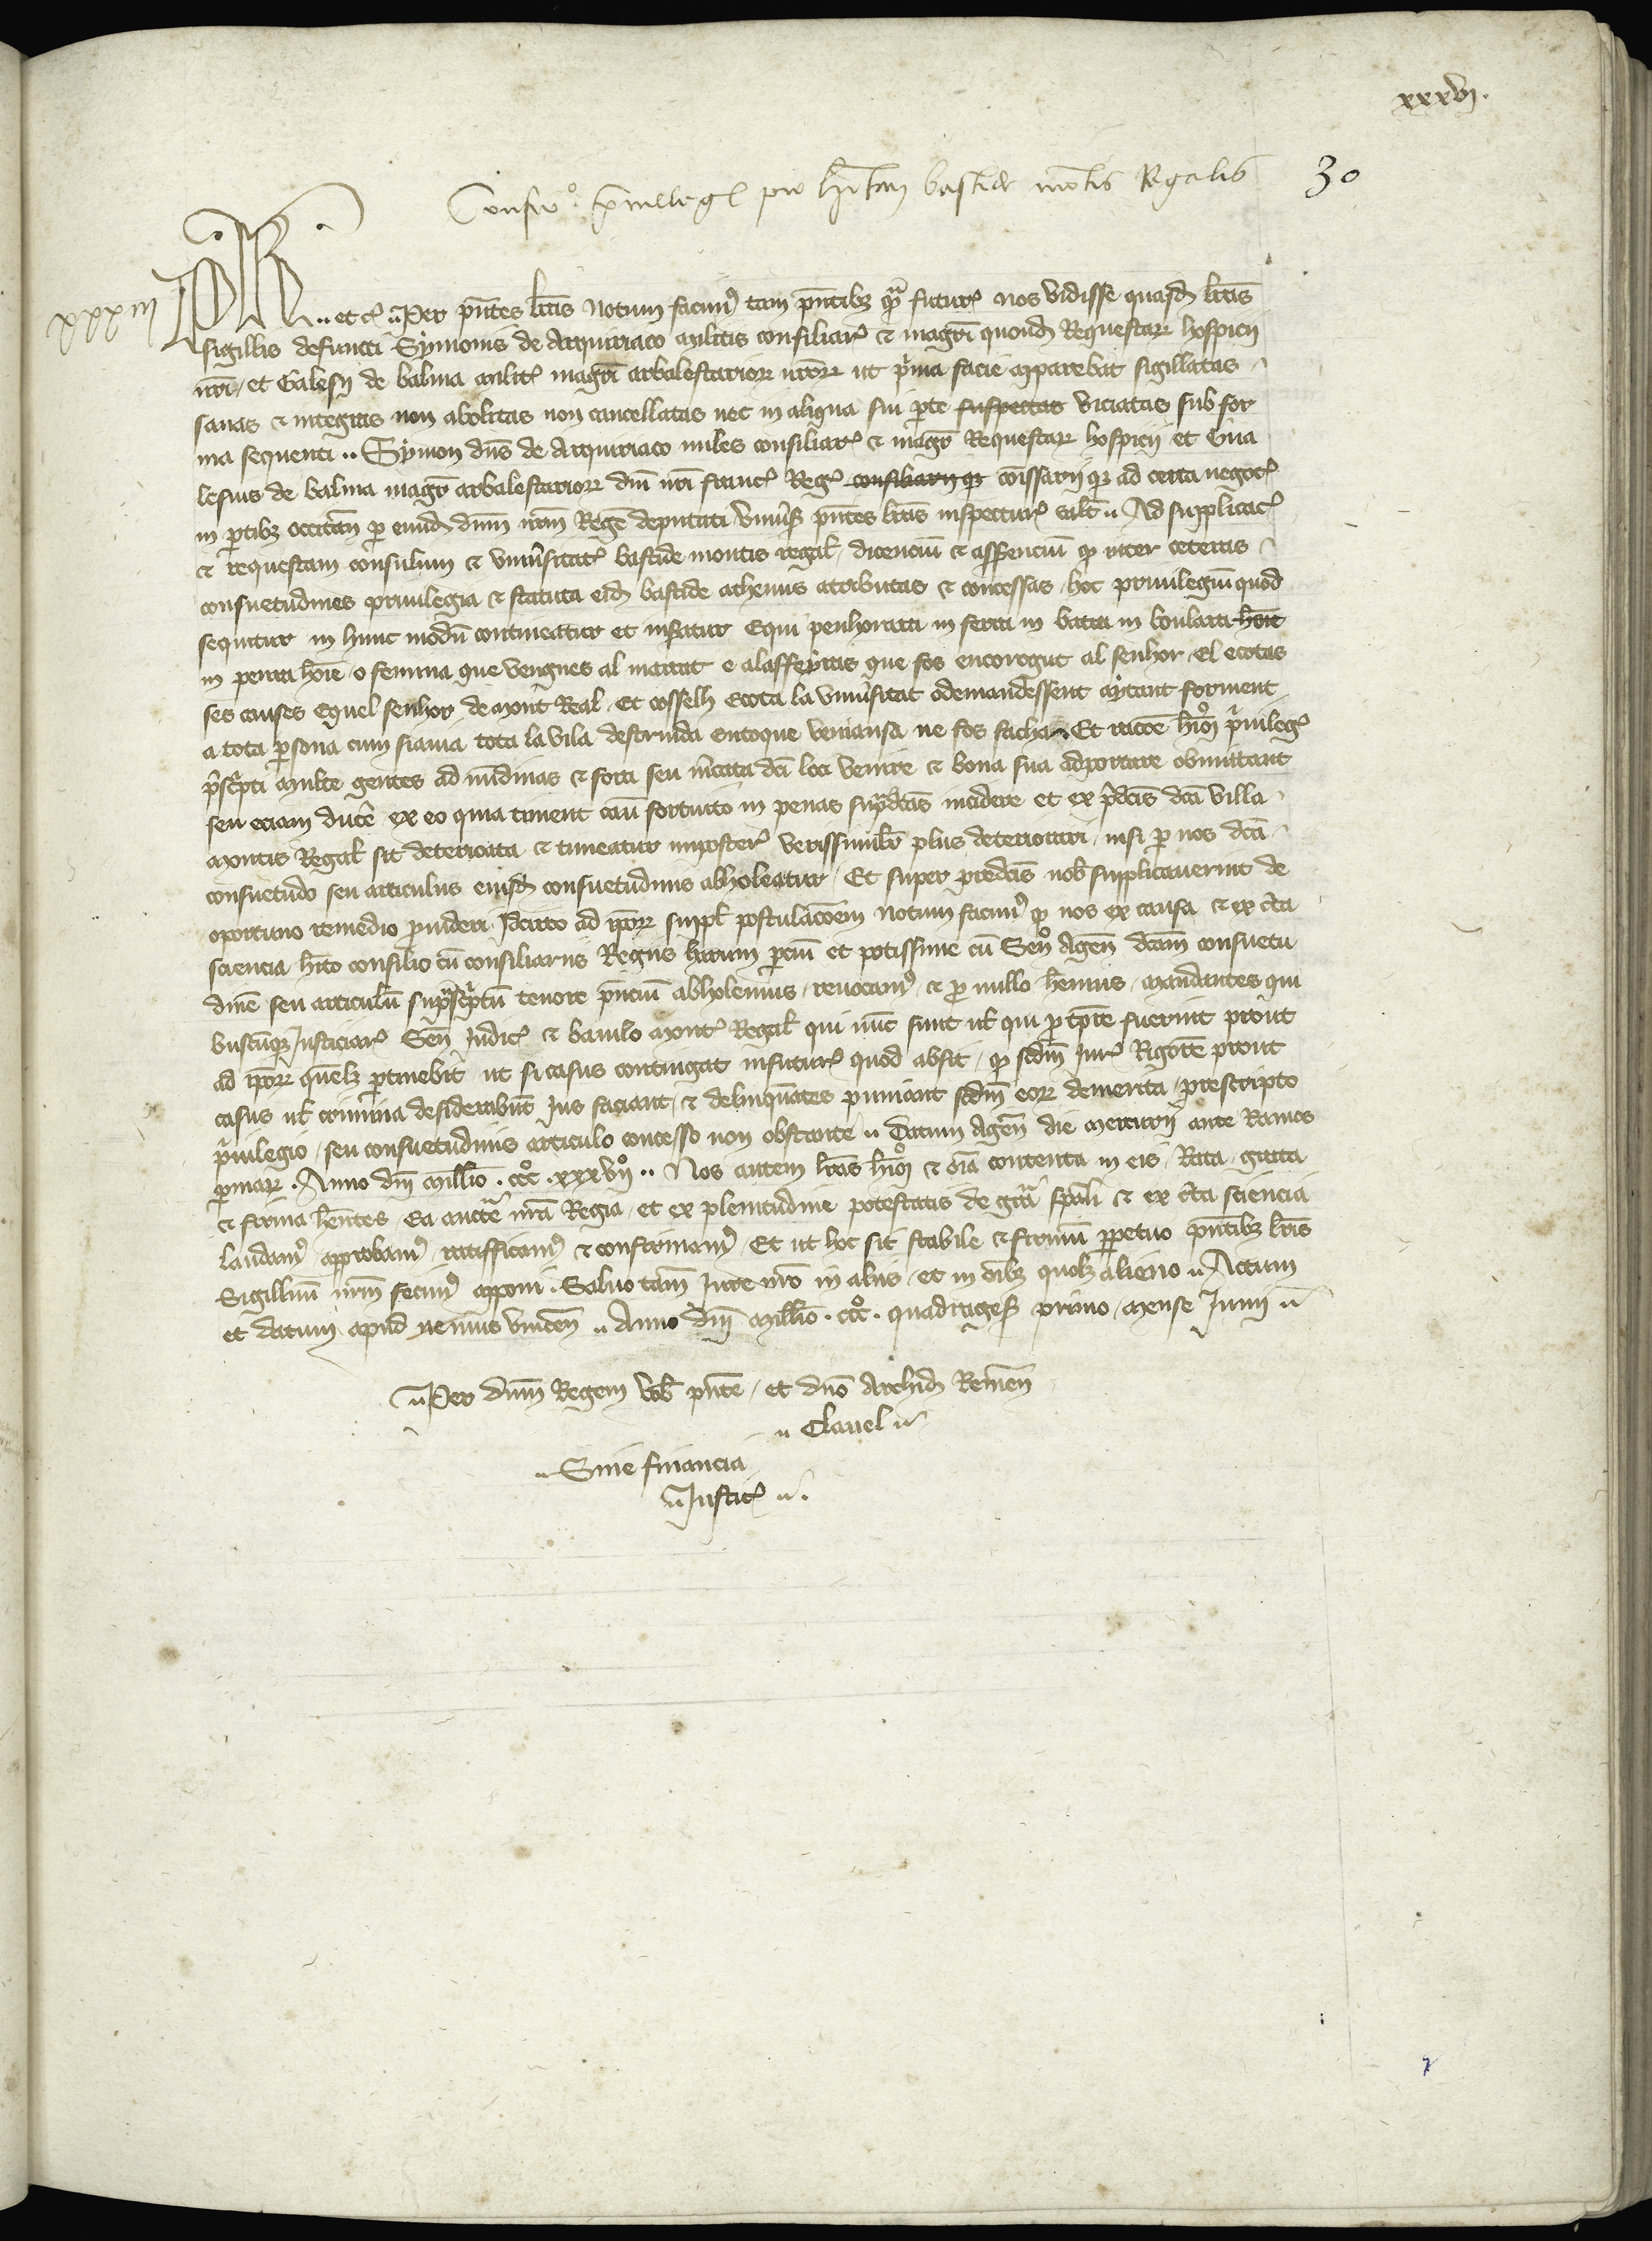 xxxvj.
Confirmo. privilegii pro habitantibus bastide montis Regalis 30
xxxiii
Ph. .. etc. Per pntes lras Notum facimus tam pntibz qua futur nos vidisse quasd lras
sigillis defuncti Symonis de Arquiriaco militis consiliar & magri quond Requestar hospicii
nri / et Galesii de balma milit magri arbalestarior nror ut prima facie apparebat sigillatas
sanas & integras non abolitas non cancellatas nec in aliqua sui parte suspectas viciatas sub for
ma sequenti .. Symon dns de Arquiriaco miles consiliar & magr Requestar hospicii et Gua
lesius de balma magr arbalestarior dni nri franc Reg consiliarii qz comissarii qz ad certa negoc
in partibz occitan per eumd dnm nrm Rege deputati Universis pntes lras inspectur salt .. Ad supplicac
& requestam consulum & universitat bastide montis regal / dicenciu & asserenciu qz inter ceteras
consuetudines privilegia & statuta eid bastide acthenus atributas & concessas / hoc privilegiu quod
sequitur in hunc modu contineatur et inseratur Equi penhorara in ferra in batra in boulara home
in penra home o femma que vengnes al marcat e alasseyras que fos encoregut al senhor / El ecotas
ses causes Equel senhor de Mont Real / Et cosselh Ecota la universitat odemandessent aytant forment
a tota persona cum siama tota la vila destruida entoque veniansa ne fos facha / Et racoe hmoi privileg
prescripti multe gentes ad nundinas & fora seu mercata dci loci venire & bona sua adportare obmittant
seu eciam ducere ex eo quia timent casu fortuito in penas supradcas incidere et ex predcis dca villa
Montis Regal sit deteriorata & timeatur imposter verissimilr plus deteriorari / nisi per nos dca
consuetudo seu articulus eiusd consuetudinis abholeatur / Et super predcis nob supplicaverint de
oportuno remedio provideri Idcirco ad ipor suppl postulacoem Notum facimus qz nos ex causa & ex cta
sciencia hito consilio cu consiliariis Regiis harum parciu et potissime cu Seno Agen dcam consuetu
dine seu articulu suprascriptu tenore pnciu abholemus / revocamus & pro nullo hemus / mandantes qui
buscuqz Justiciar Sen Judic & baiulo mont Regal qui nuc sunt vl qui pro tpre fuerint prout
ad ipor quelz pertinebit ut si casus contingat infutur quod absit / qz scdm Jur Rigore prout
casus vl crimina desiderabut Jus faciant / & delinquates puniant scdm eor demerita / prescripto
privilegio / seu consuetudinis articulo concesso non obstante .. Datum Agen die mercurii ante Ramos
palmar . Anno dni millio . ccco . xxxvijo .. Nos autem lras hmoi & oia contenta in eis / Rata / grata
& firma hentes / Ea aucte nra Regia / et ex plenitudine potestatis de gra spali & ex cta sciencia
laudamus approbamus / ratifficamus & confirmamus / Et ut hoc sit stabile & firmu perpetuo pntibz lris
Sigillum nrm fecimus apponi . Salvo tam Jure nro in aliis / et in oibz quolz alieno .. Actum
et datum apud nemus vincen .. Anno dni millio . ccco . quadrages primo / mense Junii ..
.. Per dnm Regem vob pnte / et dno Archid Remen
.. Clavel ..
.. Sine financia
.. Justic ..